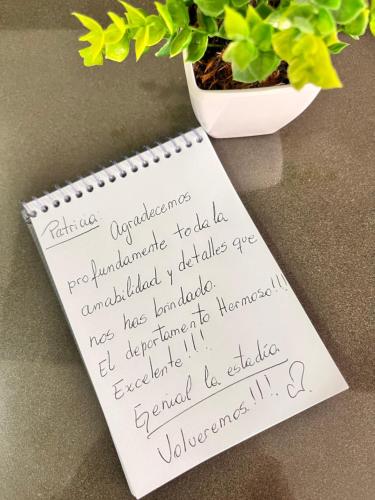 Patricia: Agradecemos
profundamente toda la
amabilidad y detalles que
nos has brindado.
El departamento Hermoso!!!
Excelente!!!
Genial la estadía
Volveremos.!!!.